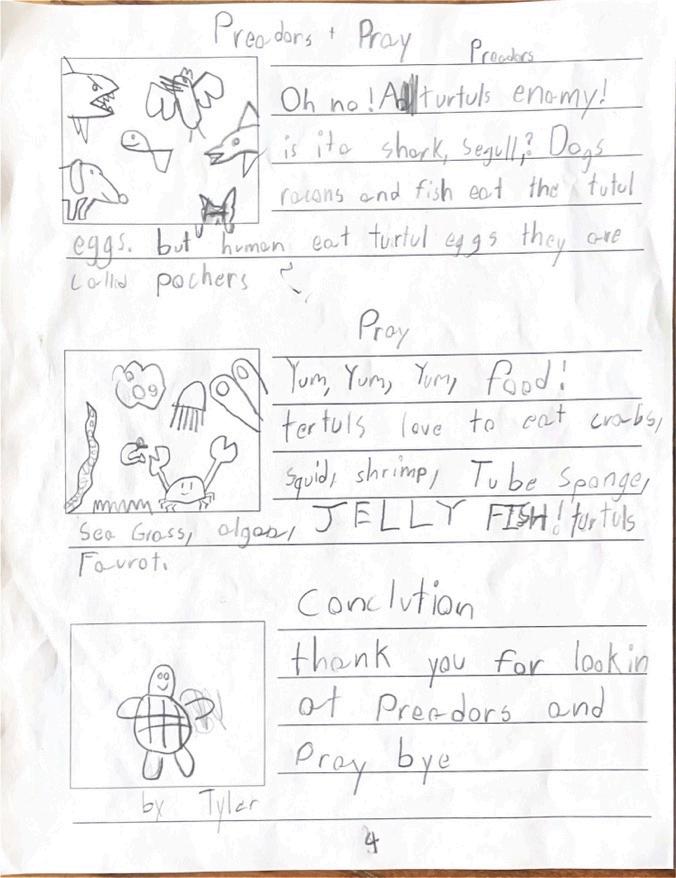 Preadors + Pray
Preadors
Oh no! A turtuls enomy!
is it a shark, segull,? Dogs
racons and fish eat the tutul
eggs. but human eat turtul eggs they are
callid pochers
Pray
Yum, Yum, Yum, food!
tertuls love to eat crabs,
squid, shrimp, Tube sponge,
Sea Grass, algae, JELLY FISH! turtuls
Favrot.
Conclution
thank you for lookin
at Preadors and
Pray bye
by Tyler
4